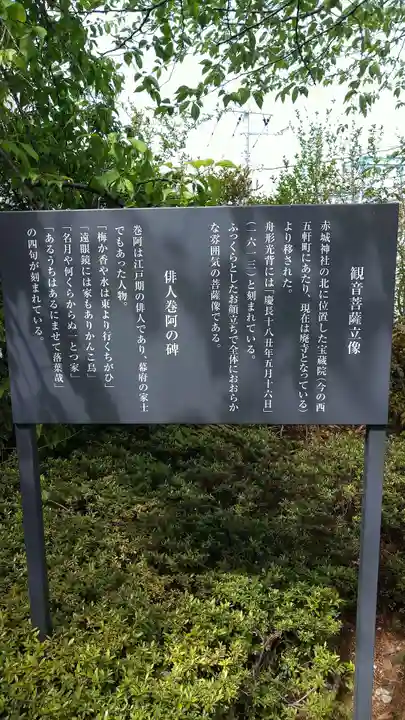 観音菩薩立像
赤城神社の北に位置した宝蔵院（今の西
五軒町にあたり、現在は廃寺となっている）
より移された。
舟形光背には「慶長十八丑年五月十六日」
（一六一三）と刻まれている。
ふっくらとしたお顔立ちで全体におおらか
な雰囲気の菩薩像である。
俳人巻阿の碑
巻阿は江戸期の俳人であり、幕府の家士
でもあった人物。
「梅か香や水は東より行くちがひ」
「遠眼鏡には家もありかんこ鳥」
「名月や何くらからぬ一とつ家」
「あるうちはあるにませて落葉哉」
の四句が刻まれている。